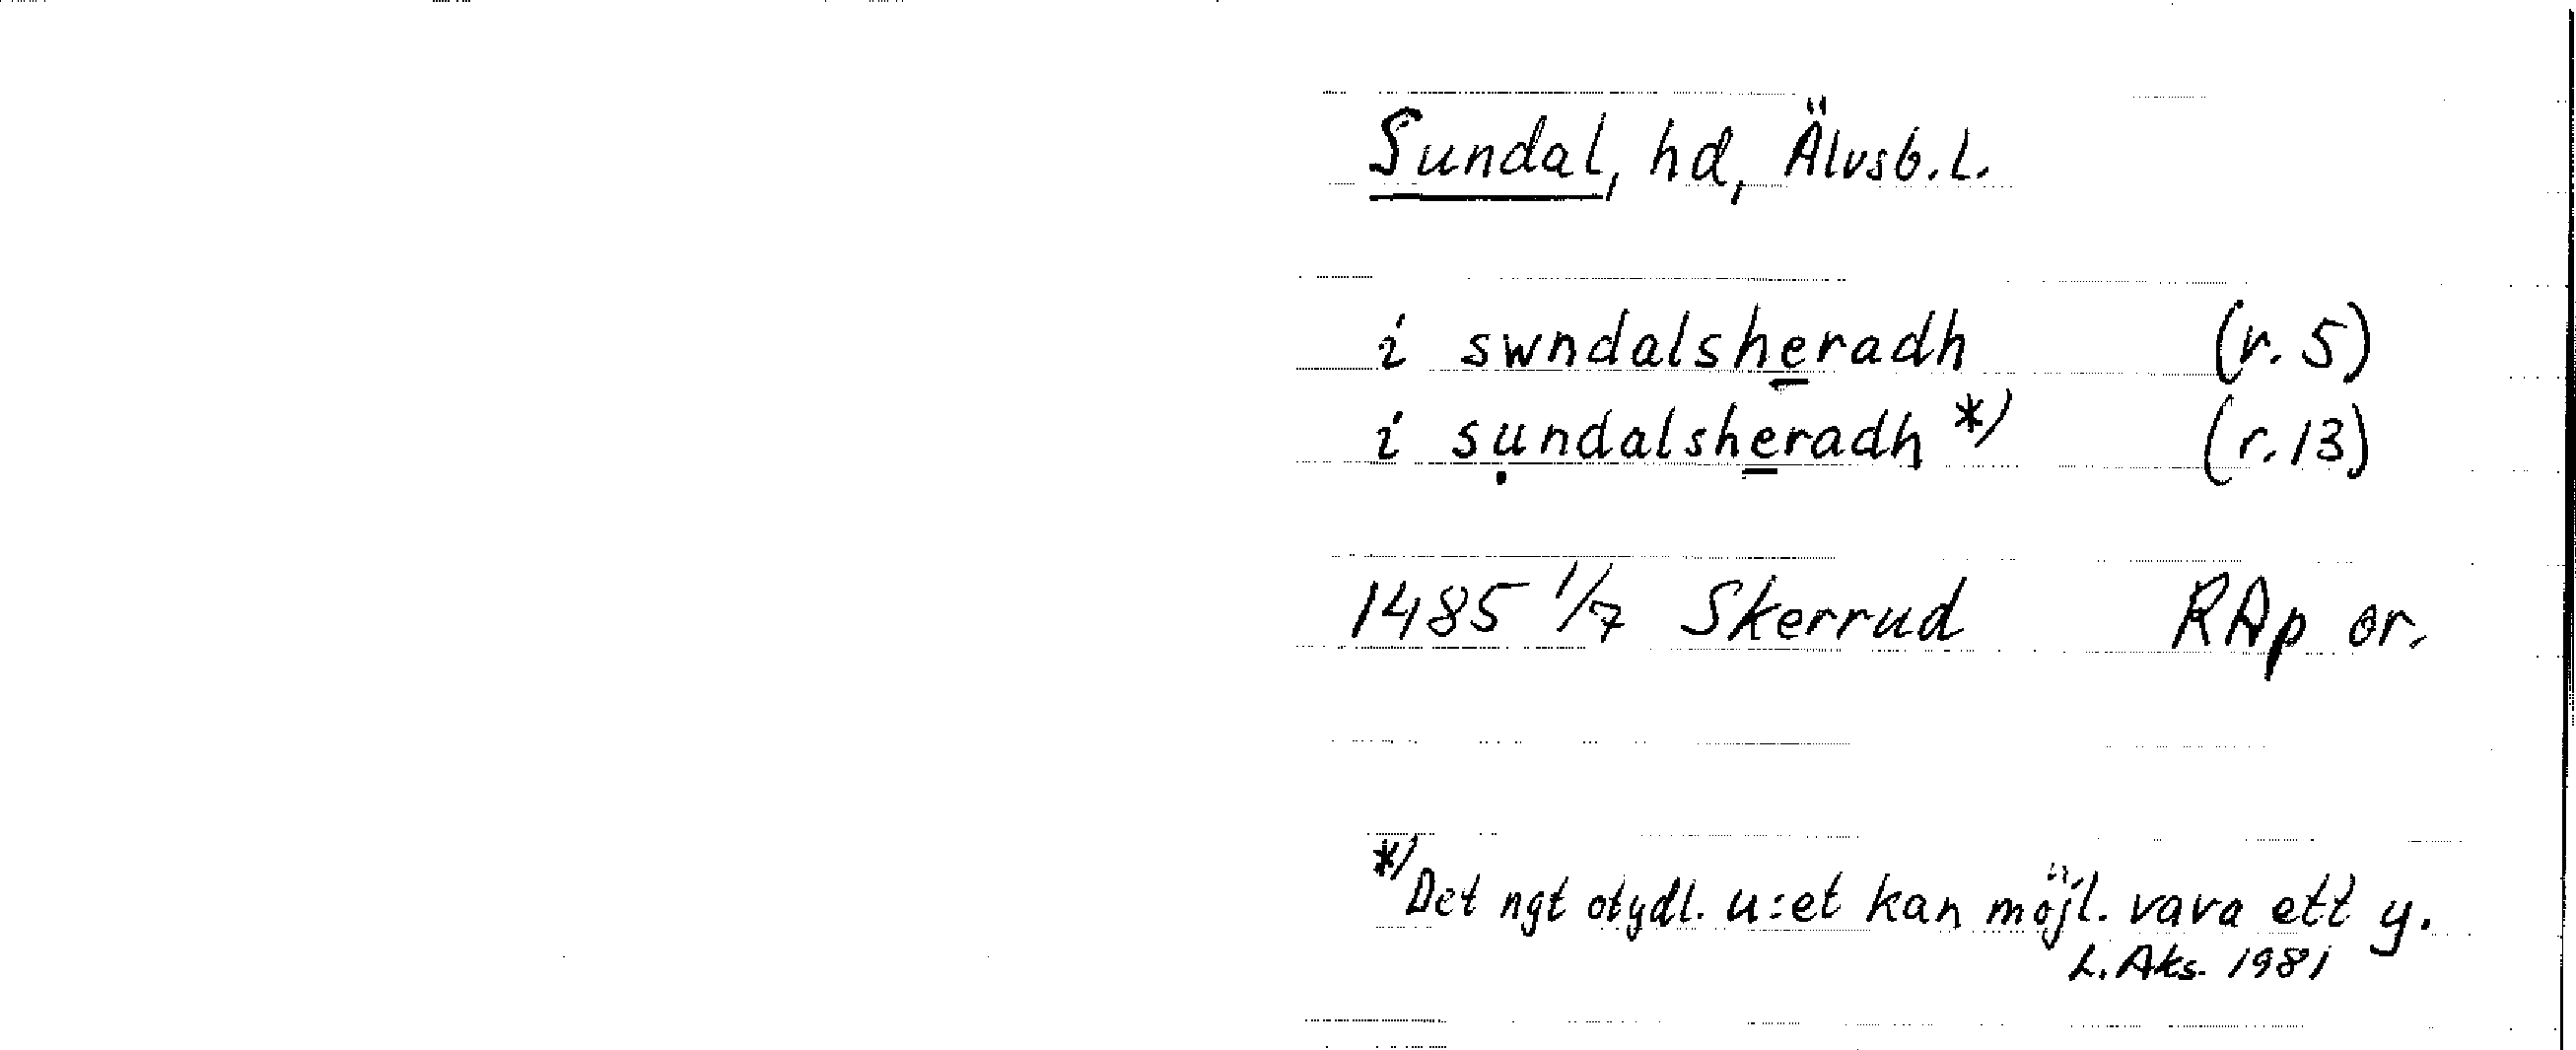 Sundal, hd, Älvsb.l.
i swndalsheradh (r. 5)
i sụndalsheradh *) (r. 13)
1485 1/7 Skerrud RAp or.
*) Det ngt otydl. u:et kan möjl. vara ett y.
L. Aks. 1981